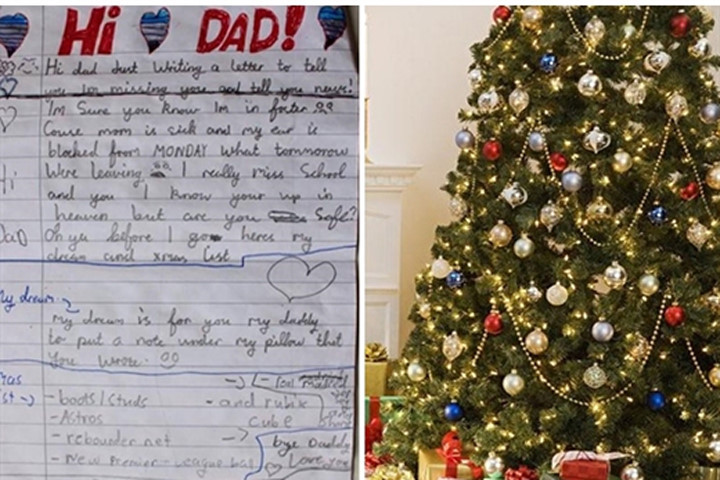 Hi DAD!
Hi dad Just Writing a letter to tell
you Im missing you and tell you news!
I'm Sure you know Im in foster
Cause mom is sick and my ear is
blocked from MONDAY What tommorow
Were leaving I really miss School
and you I know your up in
Hi
heaven but are you Safe?
DaD
Oh ya before I go heres my
dream and xmas list
My dream
my dream is for you my daddy
to put a note under my pillow that
you wrote.
list
- boots/studs
- Astros
- rebounder net
- New Premier-League ball
- and rubix
cube
bye Daddy
Love you